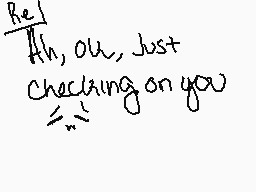 Re
Ah, ok, Just
checking on you